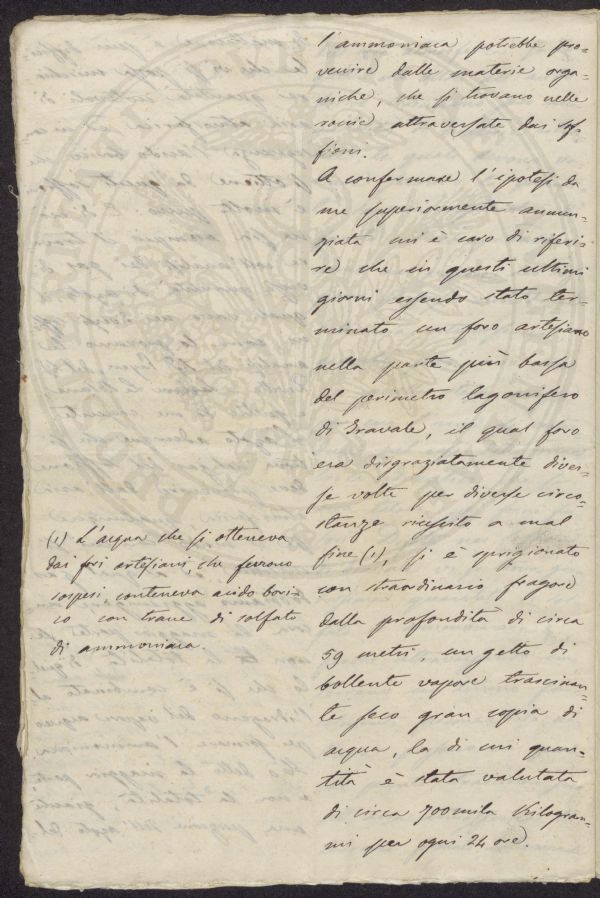 l'ammoniaca potrebbe pro-
venire dalle materie orga-
niche, che si trovano nelle
roccie attraversate dai sof-
fioni.
A confermare l'ipotesi da
me superiormente annun-
ziata mi è caro di riferi-
re che in questi ultimi
giorni essendo stato ter-
minato un foro artesiano
nella parte più bassa
del perimetro lagonifero
di Travale, il qual foro
era disgraziatamente diver-
se volte per diverse circo-
stanze riuscito a mal
fine (1), si è sprigionato
con straordinario fragore
dalla profondità di circa
59 metri, un getto di
bollente vapore trascinan-
te seco gran copia di
acqua, la di cui quan-
tità è stata valutata
di circa 700mila Kilogram-
mi per ogni 24 ore.
(1) L'acqua che si otteneva
dai fori artesiani, che furono
sospesi, conteneva acido bori-
co con tracce di solfato
di ammoniaca.